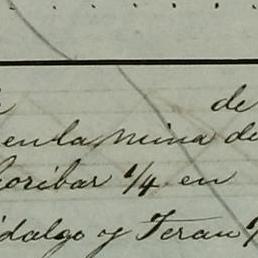 de
en la mina de
oribar 1/4 en
idalgo y Teran